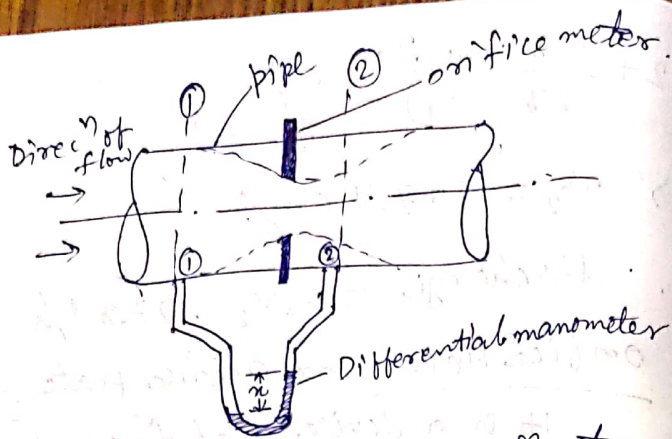 ①
pipe
②
orifice meter.
Direcⁿ of
flow
①
②
x
Differential manometer